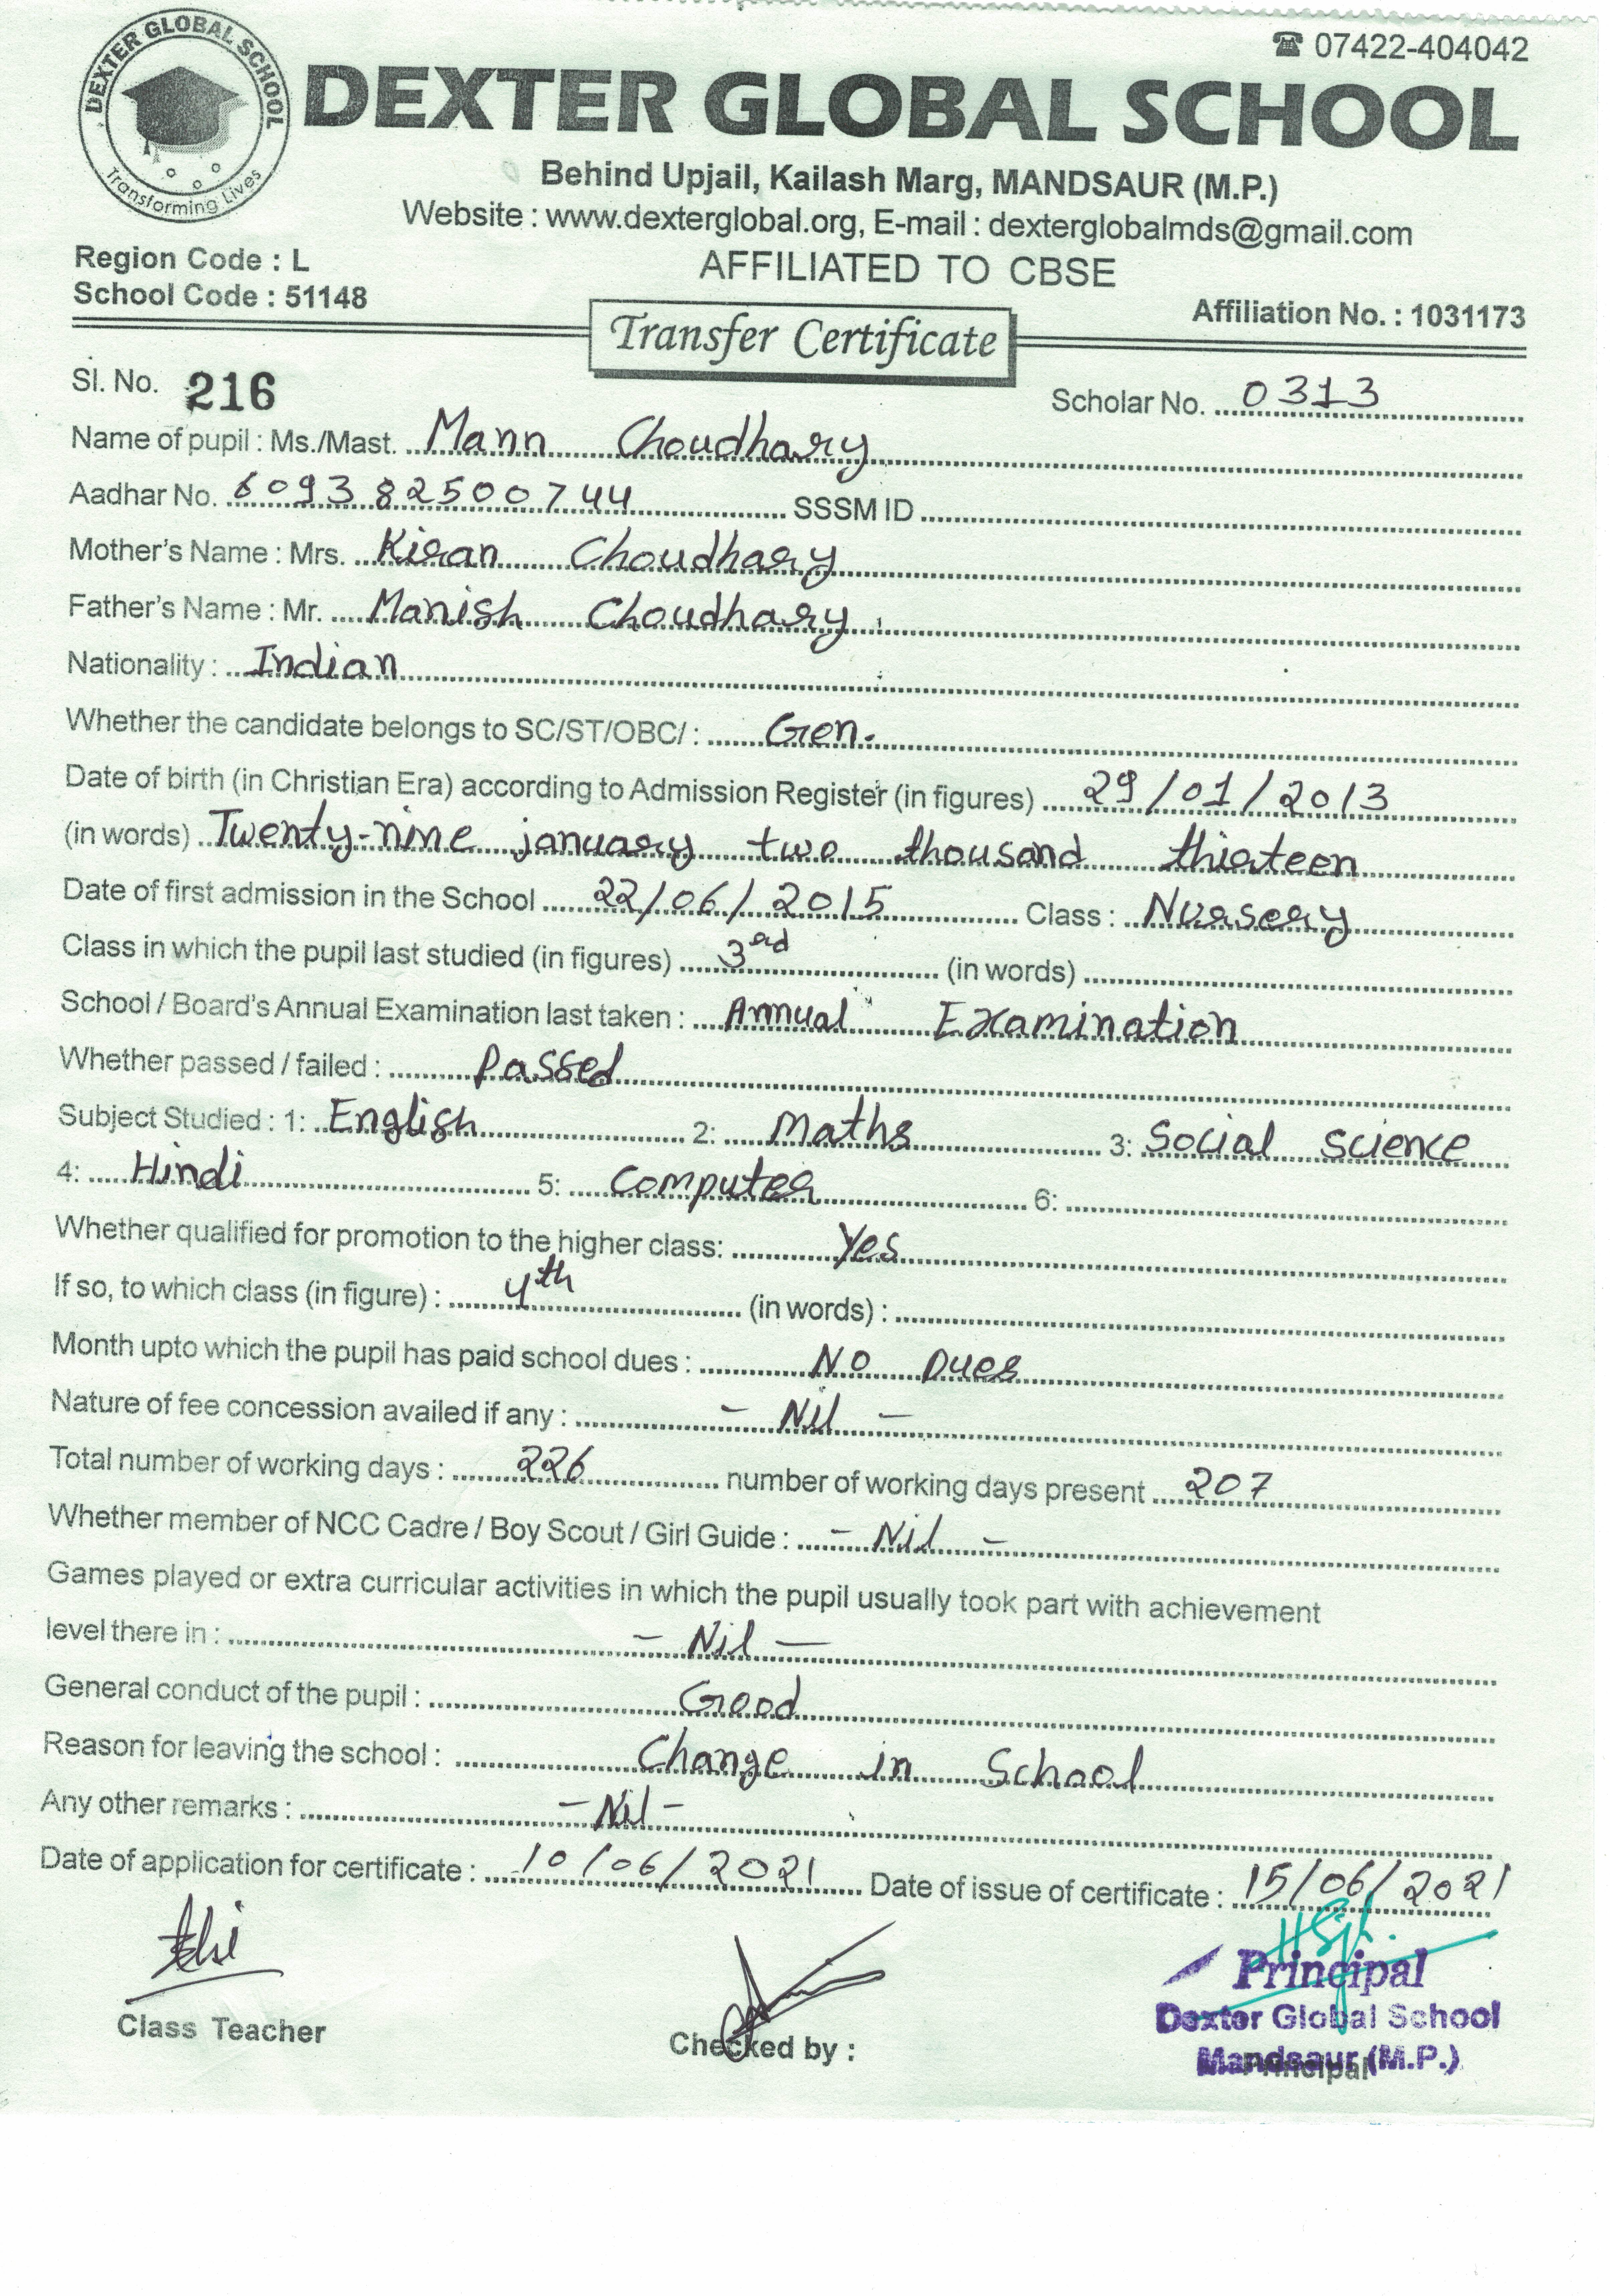 DEXTER GLOBAL SCHOOL
Transforming Lives
☎ 07422-404042
DEXTER GLOBAL SCHOOL
Behind Upjail, Kailash Marg, MANDSAUR (M.P.)
Website : www.dexterglobal.org, E-mail : dexterglobalmds@gmail.com
Region Code : L
AFFILIATED TO CBSE
School Code : 51148
Affiliation No. : 1031173
Transfer Certificate
Sl. No. 216 Scholar No. 0313
Name of pupil : Ms./Mast. Mann Choudhary
Aadhar No. 609382500744 SSSM ID
Mother's Name : Mrs. Kiran Choudhary
Father's Name : Mr. Manish Choudhary
Nationality : Indian
Whether the candidate belongs to SC/ST/OBC/ : Gen.
Date of birth (in Christian Era) according to Admission Register (in figures) 29/01/2013
(in words) Twenty-nine january two thousand thirteen
Date of first admission in the School 22/06/2015 Class : Nursery
Class in which the pupil last studied (in figures) 3rd (in words)
School / Board's Annual Examination last taken : Annual Examination
Whether passed / failed : Passed
Subject Studied : 1: English 2: Maths 3: Social science
4: Hindi 5: Computer 6:
Whether qualified for promotion to the higher class: Yes
If so, to which class (in figure) : 4th (in words) :
Month upto which the pupil has paid school dues : No Dues
Nature of fee concession availed if any : - Nil -
Total number of working days : 226 number of working days present 207
Whether member of NCC Cadre / Boy Scout / Girl Guide : - Nil -
Games played or extra curricular activities in which the pupil usually took part with achievement
level there in : - Nil -
General conduct of the pupil : Good
Reason for leaving the school : Change in School
Any other remarks : - Nil -
Date of application for certificate : 10/06/2021 Date of issue of certificate : 15/06/2021
Principal
Dexter Global School
Mandsaur (M.P.)
Class Teacher Checked by : Principal